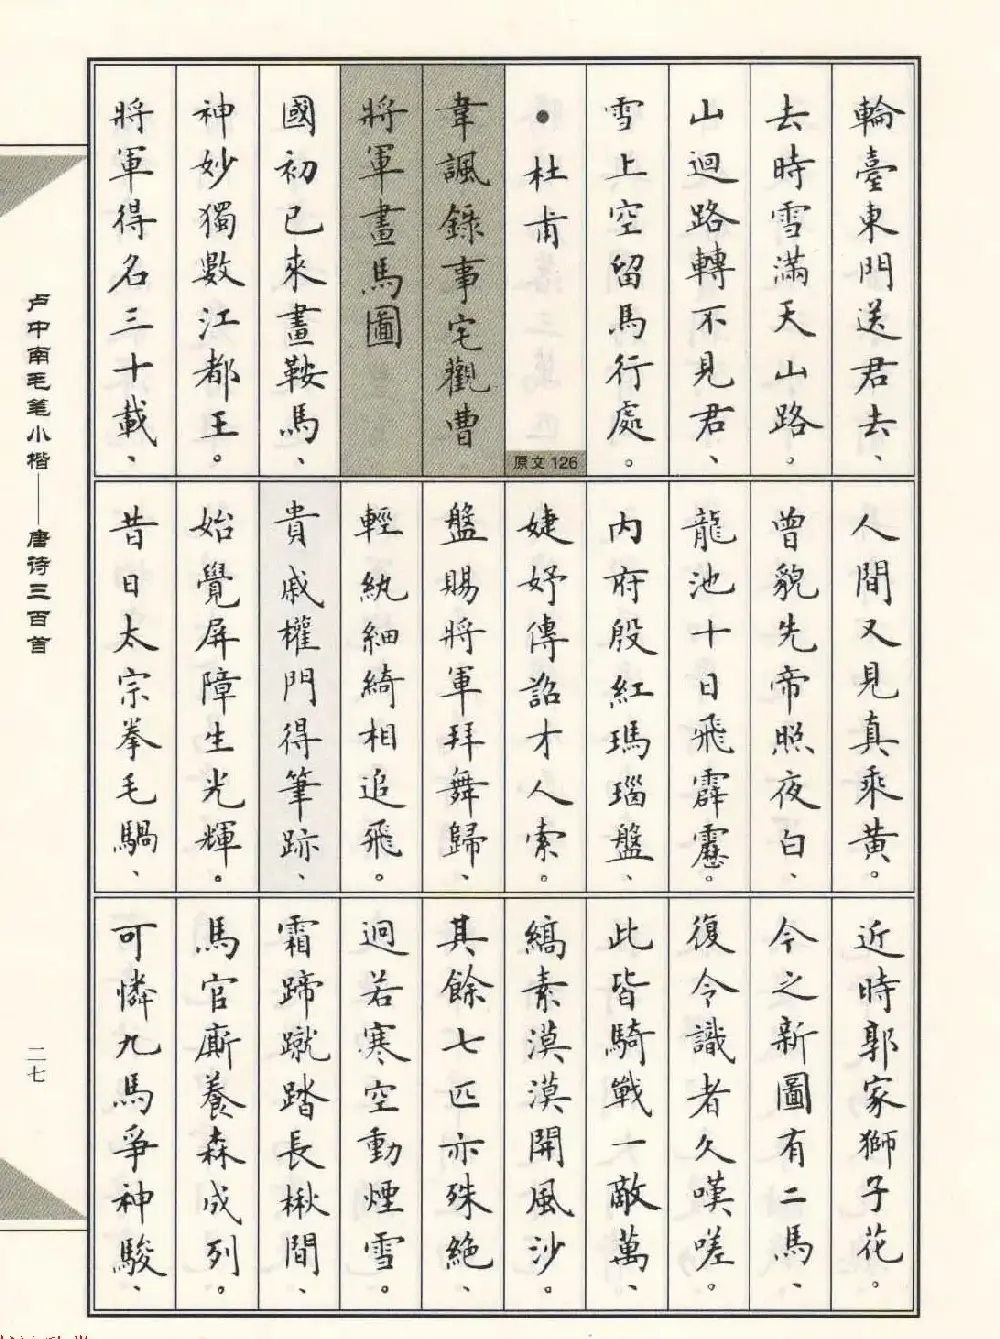 輪臺東門送君去、
去時雪滿天山路。
山迴路轉不見君、
雪上空留馬行處。
●杜甫
原文126
韋諷錄事宅觀曹
將軍畫馬圖
國初已來畫鞍馬、
神妙獨數江都王。
將軍得名三十載、
人間又見真乘黃。
曾貌先帝照夜白、
龍池十日飛霹靂。
內府殷紅瑪瑙盤、
婕妤傳詔才人索。
盤賜將軍拜舞歸、
輕紈細綺相追飛。
貴戚權門得筆跡、
始覺屏障生光輝。
昔日太宗拳毛騧、
近時郭家獅子花。
今之新圖有二馬、
復令識者久嘆嗟。
此皆騎戰一敵萬、
縞素漠漠開風沙。
其餘七匹亦殊絕、
迥若寒空動煙雪。
霜蹄蹴踏長楸間、
馬官廝養森成列。
可憐九馬爭神駿、
卢中南毛笔小楷——唐诗三百首
二七